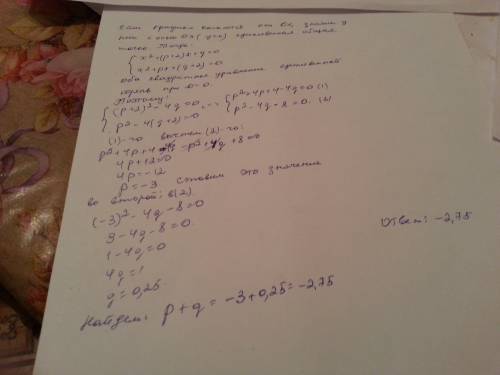 Если графики касаются оси Ox, значит у
них с осью Ox (y=0) единственная общая
точка. Тогда:
{ x²+(p+2)x+q=0
x²+px+(q+2)=0
оба квадратные уравнения
корень при D=0.
Поэтому:
{ (p+2)²-4q=0, <=> { p²+4p+4-4q=0 (1)
p²-4(q+2)=0 p²-4q-8=0. (2)
(1)-го вычтем (2)-го:
p²+4p+4-4q-p²+4q+8=0
4p+12=0
4p=-12
p=-3 ставим это значение
во второй: в(2)
(-3)²-4q-8=0
9-4q-8=0
1-4q=0
4q=1
q=0,25
Найдем: p+q=-3+0,25=-2,75
Ответ: -2,75